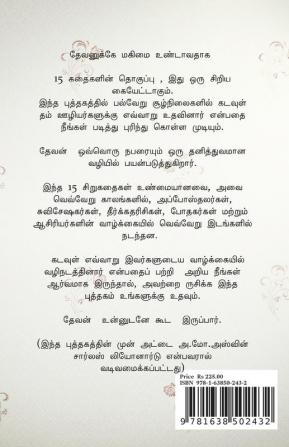 தேவனுக்கே மகிமை உண்டாவதாக
15 கதைகளின் தொகுப்பு , இது ஒரு சிறிய
கையேட்டாகும்.
இந்த புத்தகத்தில் பல்வேறு சூழ்நிலைகளில் கடவுள்
தம் ஊழியர்களுக்கு எவ்வாறு உதவினார் என்பதை
நீங்கள் படித்து புரிந்து கொள்ள முடியும்.
தேவன் ஒவ்வொரு நபரையும் ஒரு தனித்துவமான
வழியில் பயன்படுத்துகிறார்.
இந்த 15 சிறுகதைகள் உண்மையானவை, அவை
வெவ்வேறு காலங்களில், அப்போஸ்தலர்கள்,
சுவிசேஷகர்கள், தீர்க்கதரிசிகள், போதகர்கள் மற்றும்
ஆசிரியர்களின் வாழ்க்கையில் வெவ்வேறு இடங்களில்
நடந்தன.
கடவுள் எவ்வாறு இவர்களுடைய வாழ்க்கையில்
வழிநடத்தினார் என்பதைப் பற்றி அறிய நீங்கள்
ஆர்வமாக இருந்தால், அவற்றை ருசிக்க இந்த
புத்தகம் உங்களுக்கு உதவும்.
தேவன் உன்னுடனே கூட இருப்பார்.
(இந்த புத்தகத்தின் முன் அட்டை அ.மோ.அஸ்வின்
சார்லஸ் லியோனார்டு என்பவரால்
வடிவமைக்கப்பட்டது)
Price Rs 225.00
ISBN 978-1-63850-243-2
9 781638 502432